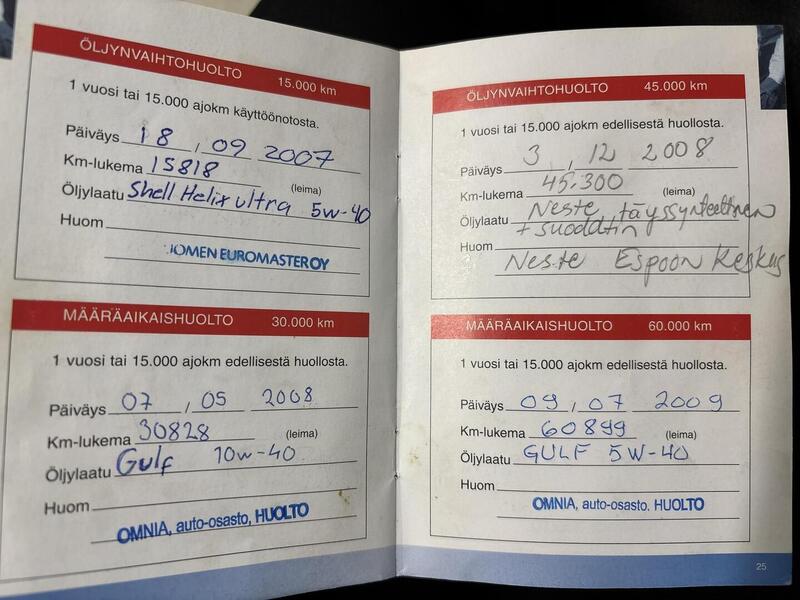 ÖLJYNVAIHTOHUOLTO 15.000 km
1 vuosi tai 15.000 ajokm käyttöönotosta.
Päiväys 18 , 09 2007
Km-lukema 15818
(leima)
Öljylaatu Shell Helix ultra 5w-40
Huom
OMEN EUROMASTER OY
MÄÄRÄAIKAISHUOLTO 30.000 km
1 vuosi tai 15.000 ajokm edellisestä huollosta.
Päiväys 07 , 05 2008
Km-lukema 30828
(leima)
Öljylaatu Gulf 10w-40
Huom
OMNIA, auto-osasto, HUOLTO
ÖLJYNVAIHTOHUOLTO 45.000 km
1 vuosi tai 15.000 ajokm edellisestä huollosta.
Päiväys 3 , 12 2008
Km-lukema 45.300
(leima)
Öljylaatu Neste täyssynteettinen
+ suodatin
Huom
Neste Espoon Keskus
MÄÄRÄAIKAISHUOLTO 60.000 km
1 vuosi tai 15.000 ajokm edellisestä huollosta.
Päiväys 09 , 07 2009
Km-lukema 60899
(leima)
Öljylaatu GULF 5W-40
Huom
OMNIA, auto-osasto. HUOLTO
25